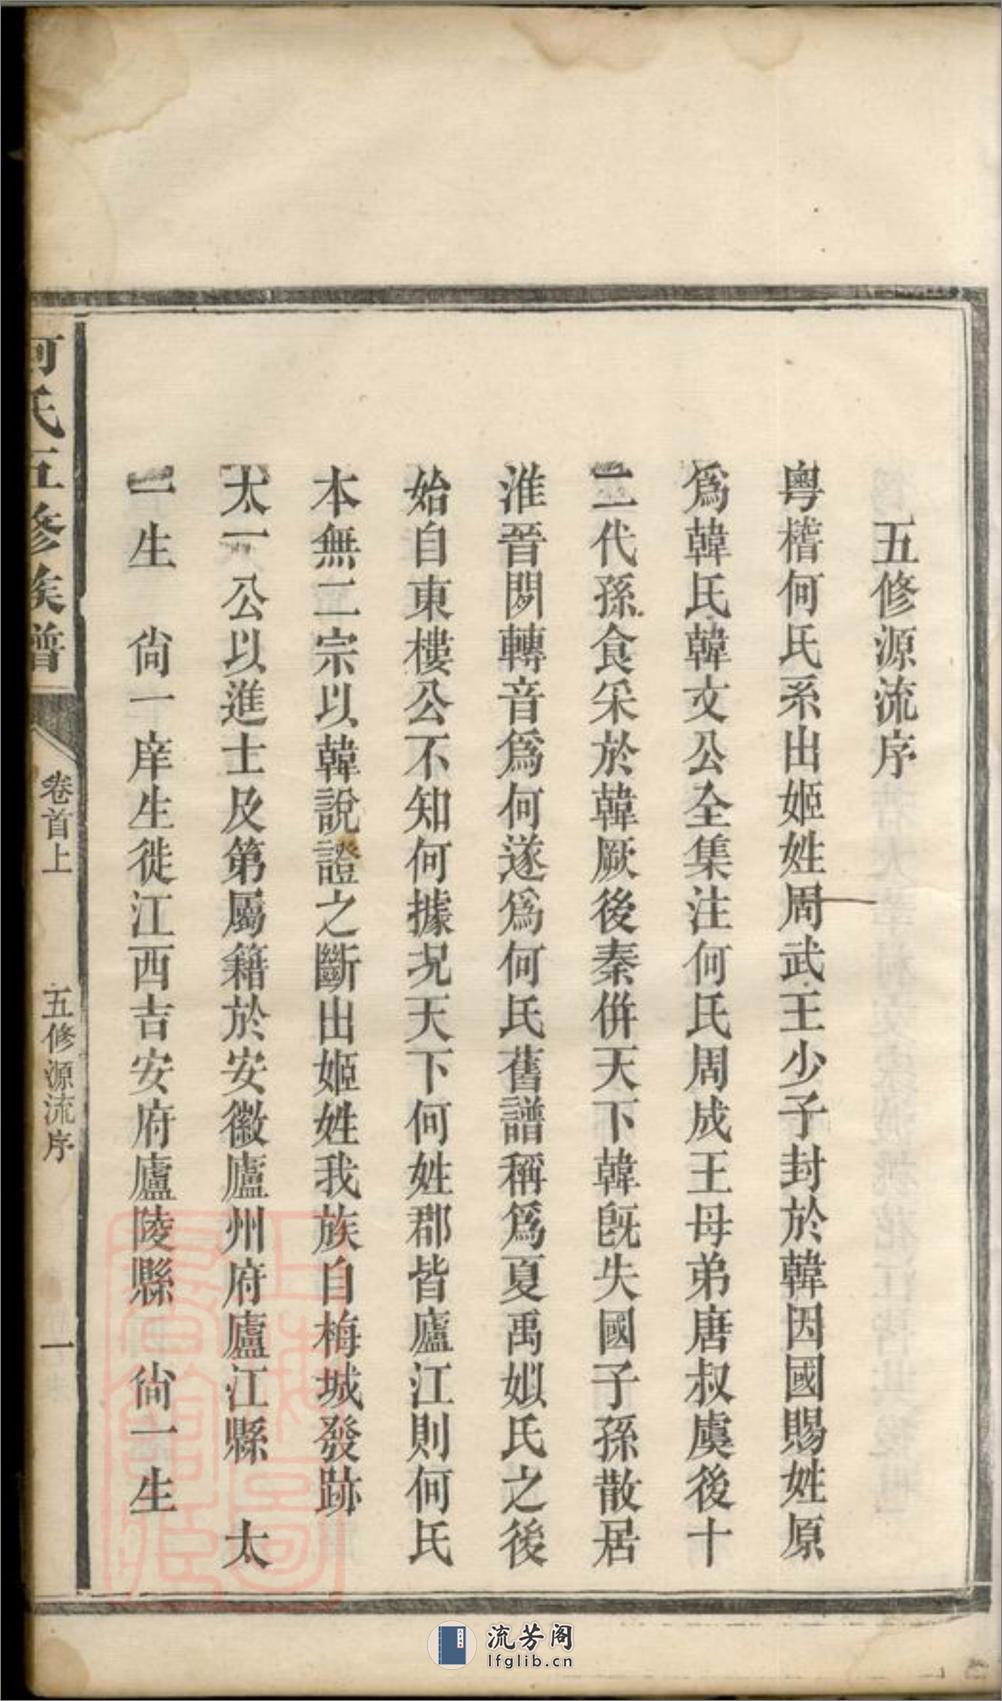 五修源流序
粵稽何氏系出姬姓周武王少子封於韓因國賜姓原
爲韓氏韓文公全集注何氏周成王母弟唐叔虞後十
二代孫食采於韓厥後秦併天下韓旣失國子孫散居
淮晉閒轉音爲何遂爲何氏舊譜稱爲夏禹姒氏之後
始自東樓公不知何據況天下何姓郡皆廬江則何氏
本無二宗以韓說證之斷出姬姓我族自梅城發跡
太一公以進士及第屬籍於安徽廬州府廬江縣 太
一生 尙一庠生徙江西吉安府廬陵縣 尙一生
何氏五修族譜
卷首上
五修源流序
一
流芳阁
lfglib.cn